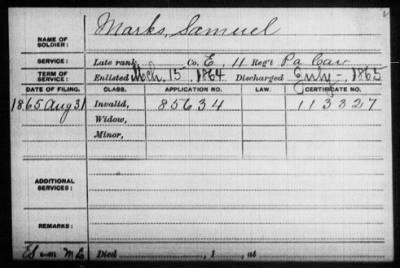 NAME OF SOLDIER: Marks, Samuel
SERVICE: Late rank, Co. E, 11 Reg't Pa Cav
TERM OF SERVICE: Enlisted Mch. 15, 1864 Discharged July -, 1865
DATE OF FILING. CLASS. APPLICATION NO. LAW. CERTIFICATE NO.
1865 Aug 31 Invalid, 85634 113327
Widow,
Minor,
ADDITIONAL SERVICES:
REMARKS:
Died , 1 , at